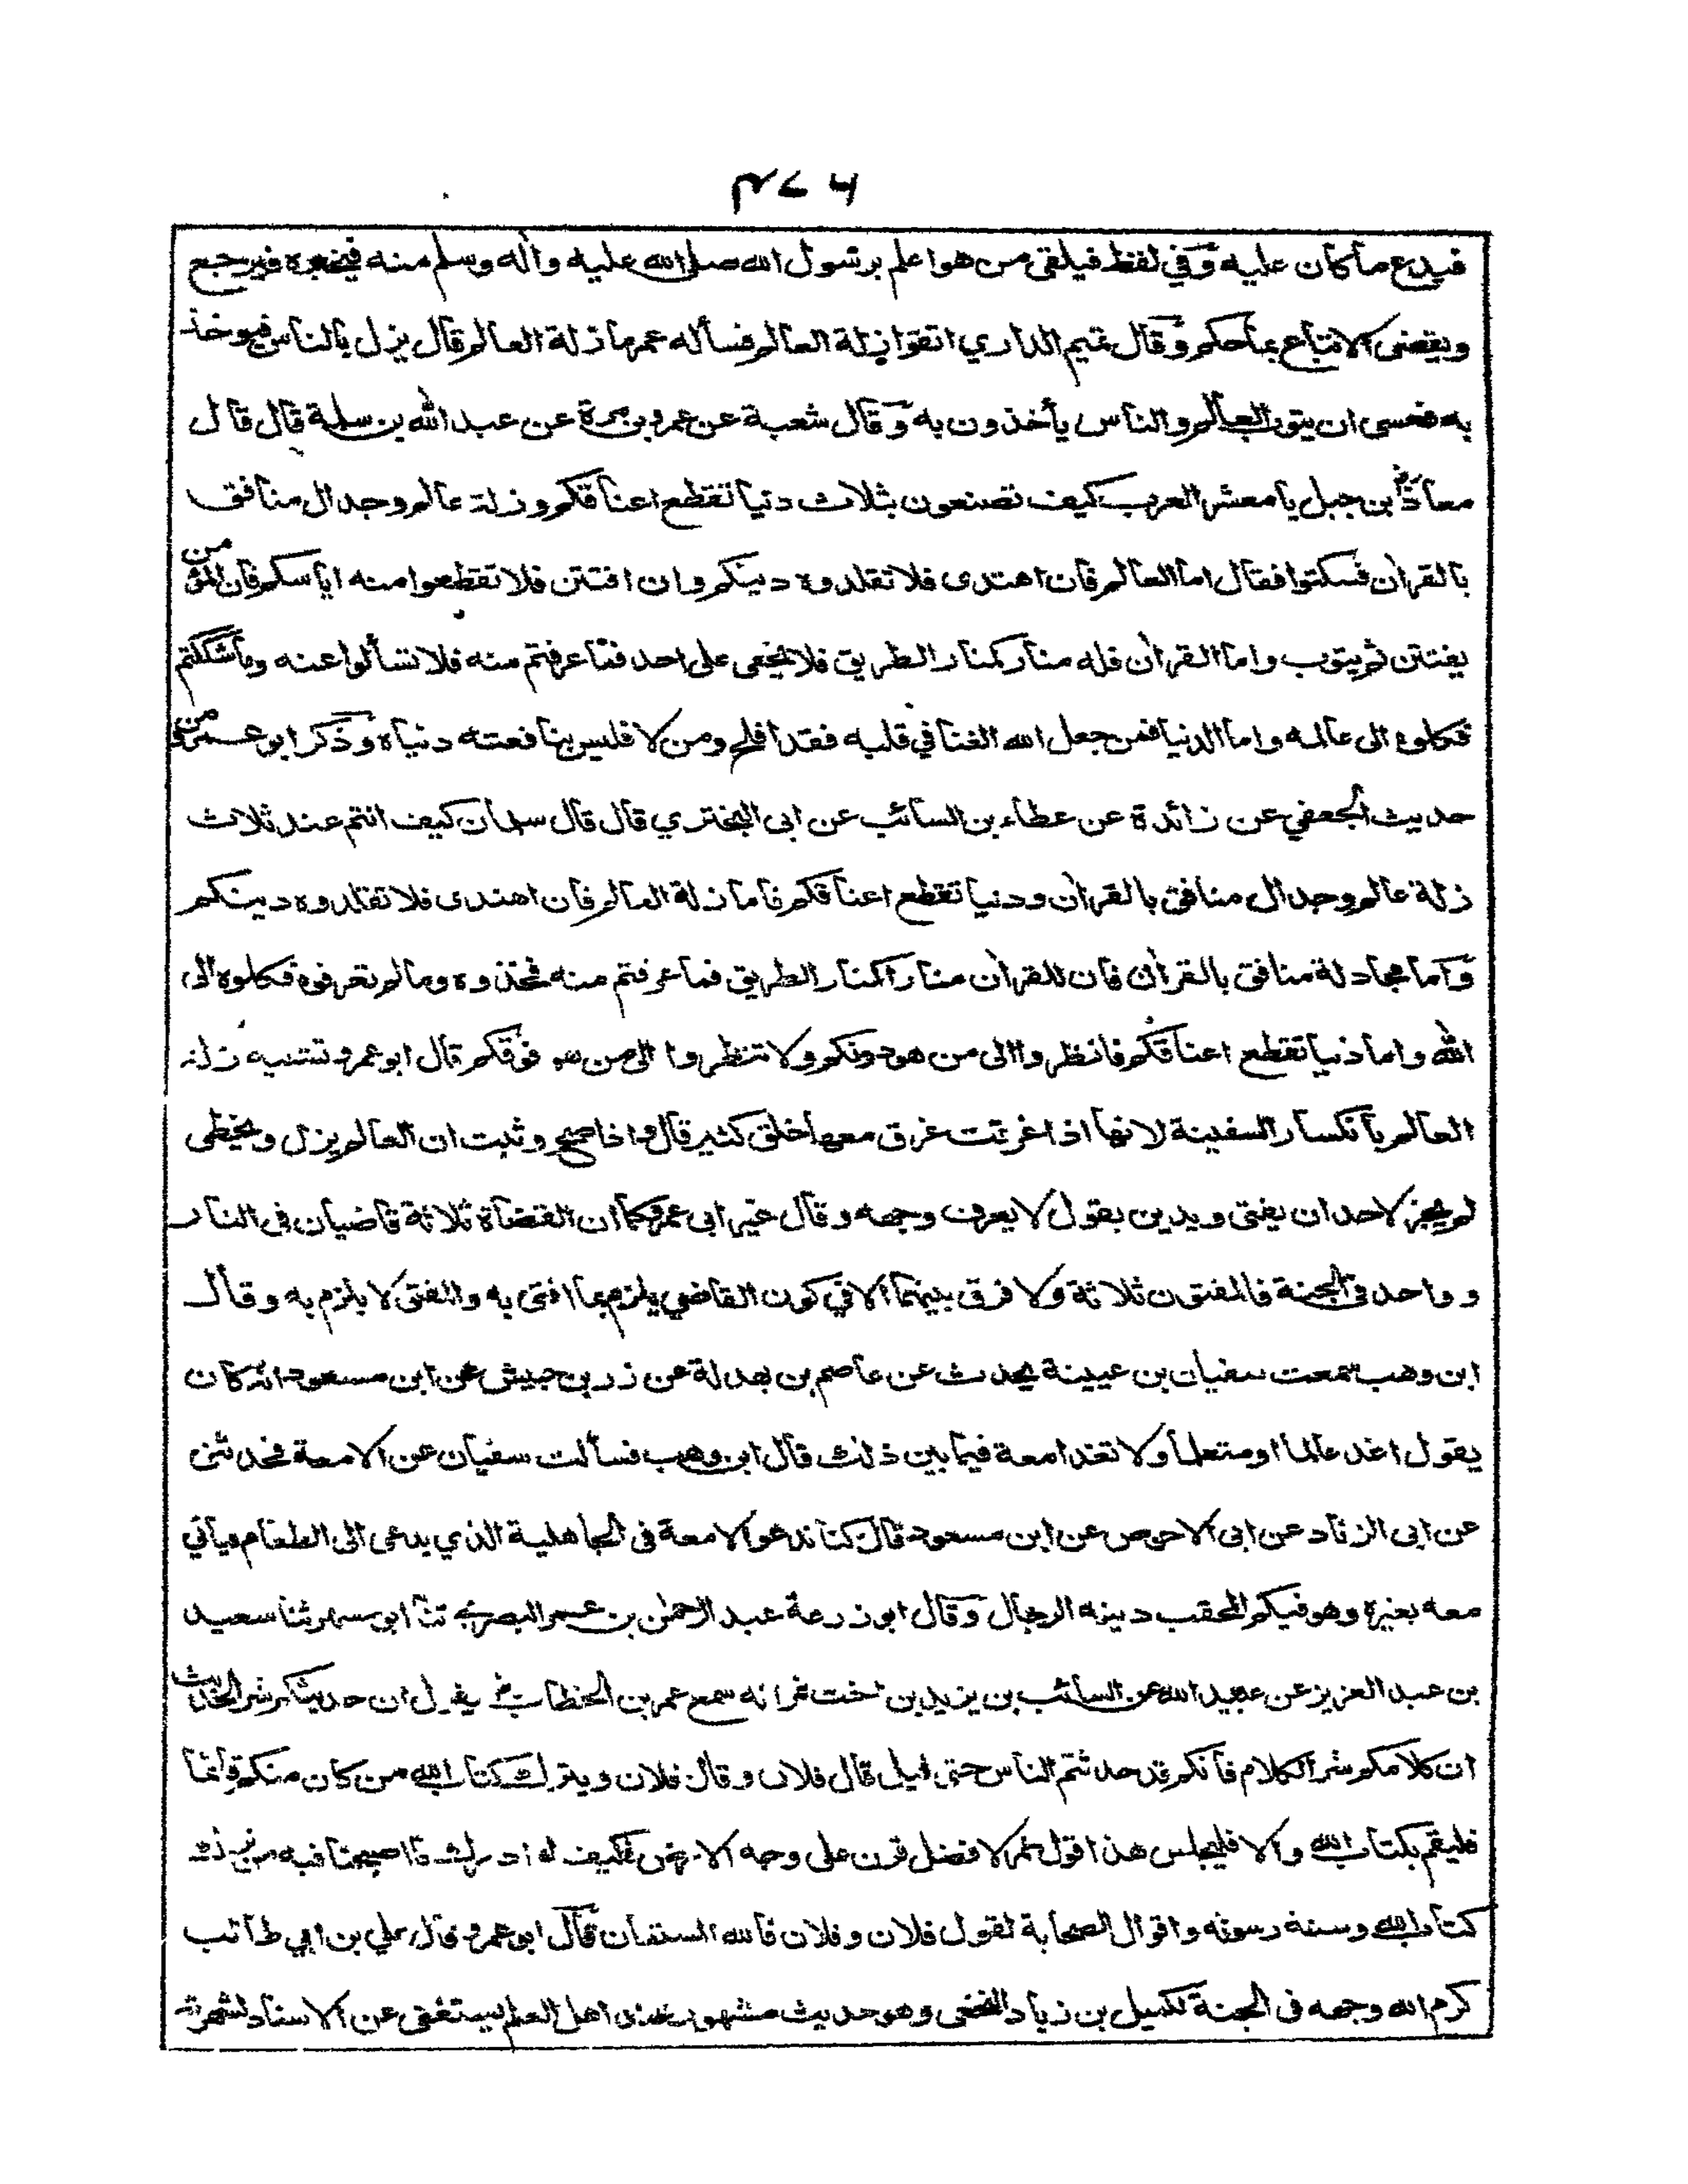 ۴۷۶
فيدع ما كان عليه وفي لفظ فيلقى من هو اعلم برسول الله صلى الله عليه وآله وسلم منه فيخبره فيرجع
ويقضى الاتباع بما حكم وقال تميم الداري اتقوا زلة العالم فسأله عمر ما زلة العالم قال يزل بالناس فيوخذ
به فعسى ان يتوب العالم والناس يأخذون به وقال شعبة عن عمرو بن مرة عن عبد الله بن سلمة قال قال
معاذ بن جبل يا معشر العرب كيف تصنعون بثلاث دنيا تقطع اعناقكم وزلة عالم وجدال منافق
بالقرآن فسكتوا فقال اما العالم فان اهتدى فلا تقلدوه دينكم وان افتتن فلا تقطعوا منه اياسكم فان المؤمن
يفتتن ثم يتوب واما القرآن فله منار كمنار الطريق فلا يخفى على احد فما عرفتم منه فلا تسألوا عنه وما شككتم
فكلوه الى عالمه واما الدنيا فمن جعل الله الغنا في قلبه فقد افلح ومن لا فليس بنافعته دنياه وذكر ابو عمر من
حديث الجعفي عن زائدة عن عطاء بن السائب عن ابى البختري قال قال سلمان كيف انتم عند ثلاث
زلة عالم وجدال منافق بالقرآن ودنيا تقطع اعناقكم فاما زلة العالم فان اهتدى فلا تقلدوه دينكم
واما مجادلة منافق بالقرآن فان للقرآن منارا كمنار الطريق فما عرفتم منه فخذوه وما لم تعرفوه فكلوه الى
الله واما دنيا تقطع اعناقكم فانظروا الى من هو دونكم ولا تنظروا الى من هو فوقكم قال ابو عمر وتشبه زلة
العالم بانكسار السفينة لانها اذا غرقت غرق معها خلق كثير قال واذا صح وثبت ان العالم يزل ويخطى
لم يجز لاحد ان يفتى ويدين بقول لا يعرف وجهه وقال غير ابى عمر كما ان القضاة ثلاثة قاضيان فى النار
وواحد فى الجنة فالمفتون ثلاثة ولا فرق بينهما الا في كون القاضي يلزم بما افتى به والمفتى لا يلزم به وقال
ابن وهب سمعت سفيان بن عيينة يحدث عن عاصم بن بهدلة عن زر بن حبيش عن ابن مسعود انه كان
يقول اغد عالما او متعلما ولا تغد امعة فيما بين ذلك قال ابن وهب فسألت سفيان عن الامعة فحدثنى
عن ابى الزناد عن ابى الاحوص عن ابن مسعود قال كنا ندعو الامعة فى الجاهلية الذي يدعى الى الطعام فيأتي
معه بغيره وهو فيكم المحقب دينه الرجال وقال ابو زرعة عبد الرحمن بن عمر البصري ثنا ابو مسهر ثنا سعيد
بن عبد العزيز عن عبيد الله عن السائب بن يزيد بن اخت نمر انه سمع عمر بن الخطاب يقول ان حديثكم شر الحديث
ان كلامكم شر الكلام فانكم قد حدثتم الناس حتى قيل قال فلان وقال فلان ويترك كتاب الله من كان منكم قائما
فليقم بكتاب الله والا فليجلس هذا قول عمر لافضل قرن على وجه الارض فكيف لو ادرك ما اصبحنا فيه من ترك
كتاب الله وسنة رسوله واقوال الصحابة لقول فلان وفلان فالله المستعان قال ابو عمر وقال على بن ابي طالب
كرم الله وجهه فى الجنة لكميل بن زياد النخعى وهو حديث مشهور عند اهل العلم يستغنى عن الاسناد لشهرته